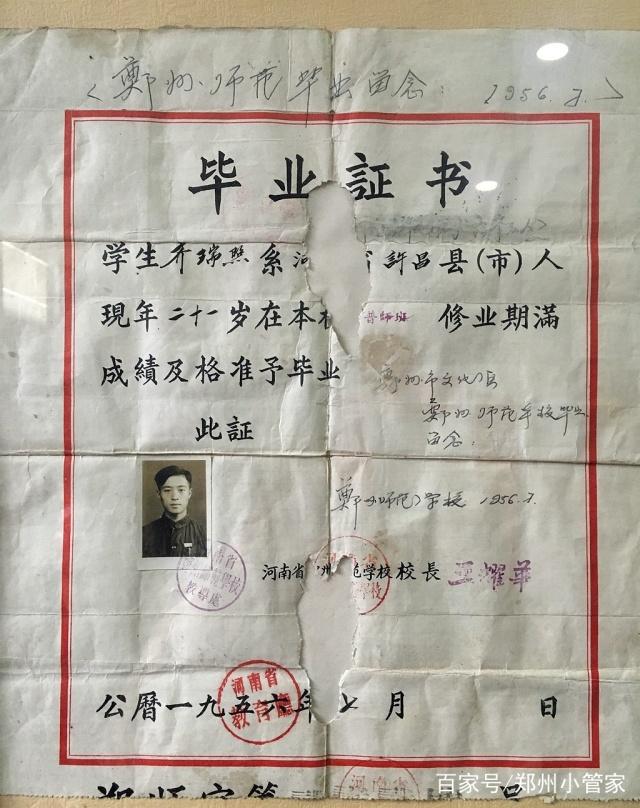 <鄭州师范毕业留念: 1956.7.>
毕业証书
学生乔瑞熙系河 許昌县(市)人
現年二十一岁在本校 普師班 修业期滿
成績及格准予毕业
此証
鄭州市文化
鄭州师范学校毕业
留念:
鄭州师范学校 1956.7.
河南省 州 范学校校長 王耀华
河南省
教導處
河南省
教育廳
公曆一九五六年七月 日
鄭師字第
百家号/郑州小管家